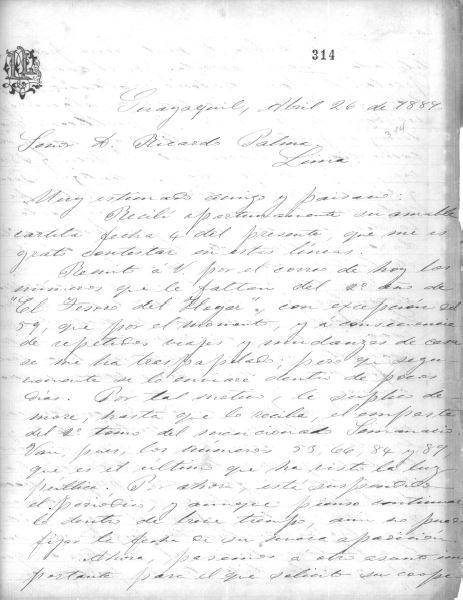 314
Guayaquil, Abril 26 de 1889.
314
Señor D. Ricardo Palma,
Lima
Muy estimado amigo y paisano:
Recibí oportunamente su amable
cartita fecha 4 del presente, que me es
grato contestar en estas líneas.
Remito á V. por el correo de hoy los
números que le faltan del 2º año de
"El Tesoro del Hogar", con excepción del
59, que por el momento, y á consecuencia
de repetidos viajes y mudanzas de casa
se me ha traspapelado; pero que segu-
ramente se lo enviaré dentro de pocos
dias. Por tal motivo, le suplico de-
more, hasta que lo reciba, el empaste
del 2º tomo del mencionado Semanario.
Van, pues, los números 53, 66, 84 y 87
que es el último que ha visto la luz
pública. Por ahora, está suspendido
el periódico, y aunque pienso continuar
lo dentro de breve tiempo, aun no puedo
fijar la fecha de su nueva aparición.
Ahora, pasemos a otro asunto im
portante para el que solicito su coope